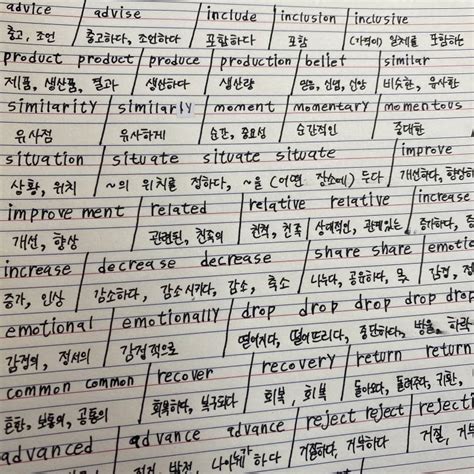 advice / advise / include / inclusion / inclusive
충고, 조언 / 충고하다, 조언하다 / 포함하다 / 포함 / (가격이) 일체를 포함하는
product product / produce / production / belief / similar
제품, 생산품, 결과 / 생산하다 / 생산량 / 믿음, 신념, 신앙 / 비슷한, 유사한
similarity / similarly / moment / momentary / momentous
유사점 / 유사하게 / 순간, 중요성 / 순간적인 / 중대한
situation / situate situate situate / improve
상황, 위치 / ~의 위치를 정하다, ~을 (어떤 장소에) 두다 / 개선하다, 향상하
improvement / related / relative relative / increase
개선, 향상 / 관련된, 친족의 / 친척, 친족 / 상대적인, 관계있는 / 증가하다,
increase / decrease decrease / share share / emotio
증가, 인상 / 감소하다, 감소시키다, 감소, 축소 / 나누다, 공유하다, 몫 / 감정,
emotional / emotionally / drop drop drop drop drop
감정의, 정서의 / 감정적으로 / 떨어지다, 떨어뜨리다, 중단하다, 방울, 하락
common common / recover / recovery / return return
흔한, 보통의, 공통의 / 회복하다, 복구되다 / 회복, 회복 / 돌아오다, 돌려주다, 귀환,
advanced / advance advance / reject reject / rejection
나아가다 / 거절하다, 거부하다 / 거절,